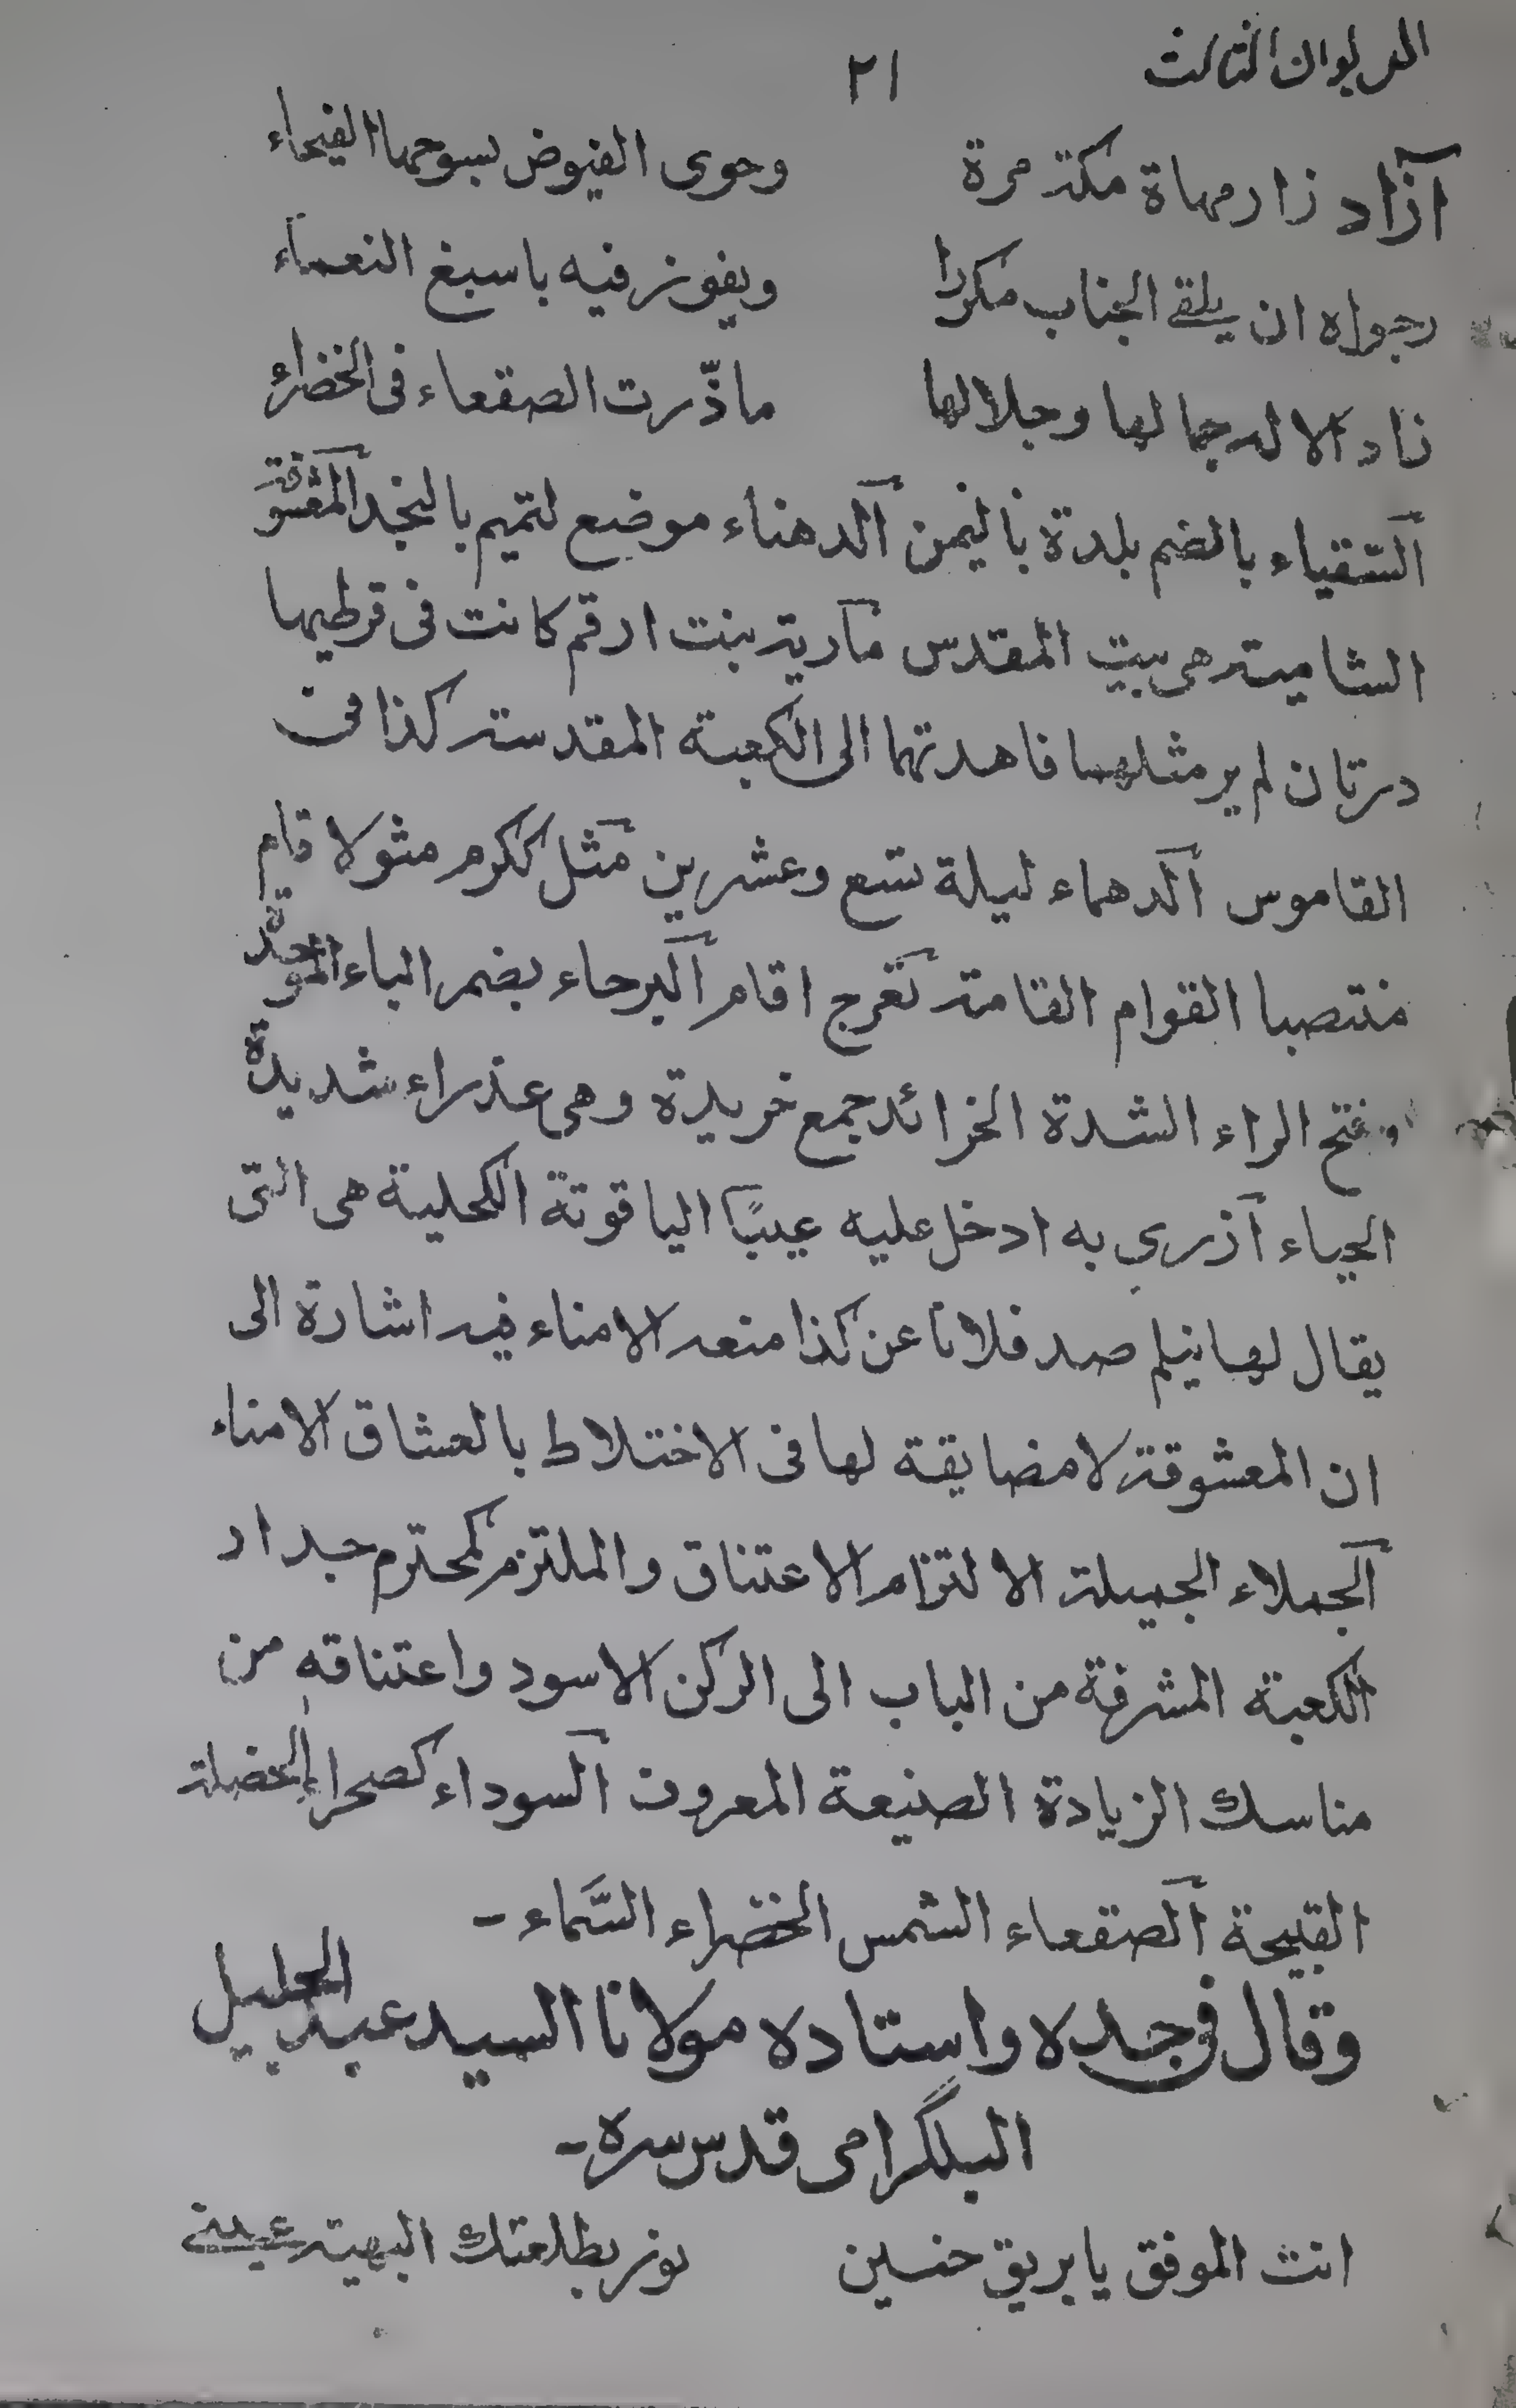 الديوان الثالث ٢١
آزاد زار مهاة مكة مرة وحوى الفيوض بسوحها الفيحاء
رجواه ان يلقى الجناب مكررا ويفوز فيه باسبغ النعماء
زاد الاله جمالها وجلالها ماذّرت الصقعاء فى الخضراء
السقياء بالضم بلدة باليمن الدهناء موضع لتميم بالنجد المعشوقة
الشامية هى بيت المقدس مارية بنت ارقم كانت فى قرطيها
درتان لم ير مثلهما فاهدتهما الى الكعبة المقدسة كذا فى
القاموس الدهماء ليلة تسع وعشرين مثل ككرم مثولا قام
منتصبا القوام القامة تعرج اقام البرحاء بضم الباء الموحدة
وفتح الراء الشدة الخرائد جمع خريدة وهى عذراء شديدة
الحياء آزرى به ادخل عليه عيبًا الياقوتة الكحلية هى التى
يقال لها نيلم صد فلانا عن كذا منعه الامناء فيه اشارة الى
ان المعشوقة لا مضايقة لها فى الاختلاط بالعشاق الامناء
الجملاء الجميلة الالتزام الاعتناق والملتزم كمحترم جدار
الكعبة المشرفة من الباب الى الركن الاسود واعتناقه من
مناسك الزيادة الصنيعة المعروف السوداء كصحراء الخصلة
القبيحة الصقعاء الشمس الخضراء السَّماء -
وقال فى جده واستاده مولانا السيد عبد الجليل
البلگرامى قدس سره -
انت الموفق يا بريق حنين نور بطلعتك البهية عينى